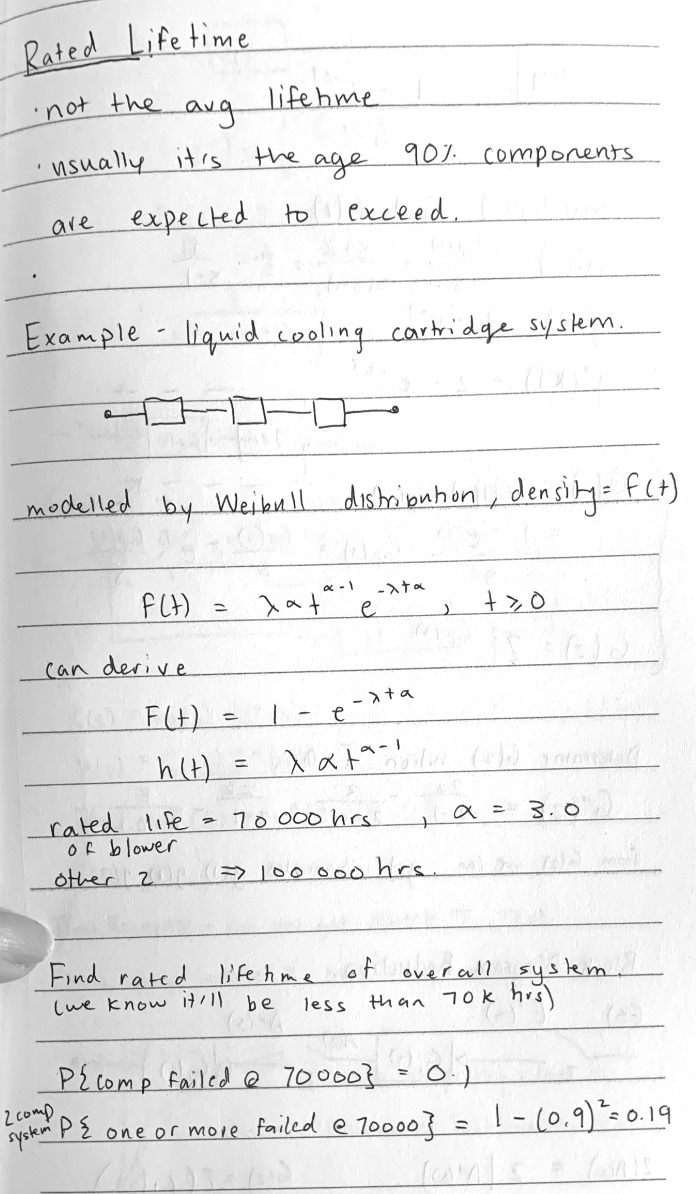 Rated Lifetime
· not the avg lifetime
· usually it's the age 90% components
are expected to exceed.
·
Example - liquid cooling cartridge system.
modelled by Weibull distribution, density = f(t)
f(t) = λαt^(α-1) e^(-λtα), t ≥ 0
can derive
F(t) = 1 - e^(-λtα)
h(t) = λαt^(α-1)
rated life = 70 000 hrs, α = 3.0
of blower
other 2 => 100 000 hrs.
Find rated lifetime of overall system.
(we know it'll be less than 70k hrs)
P{comp failed @ 70000} = 0.1
2 comp system P{ one or more failed @ 70000} = 1 - (0.9)² = 0.19